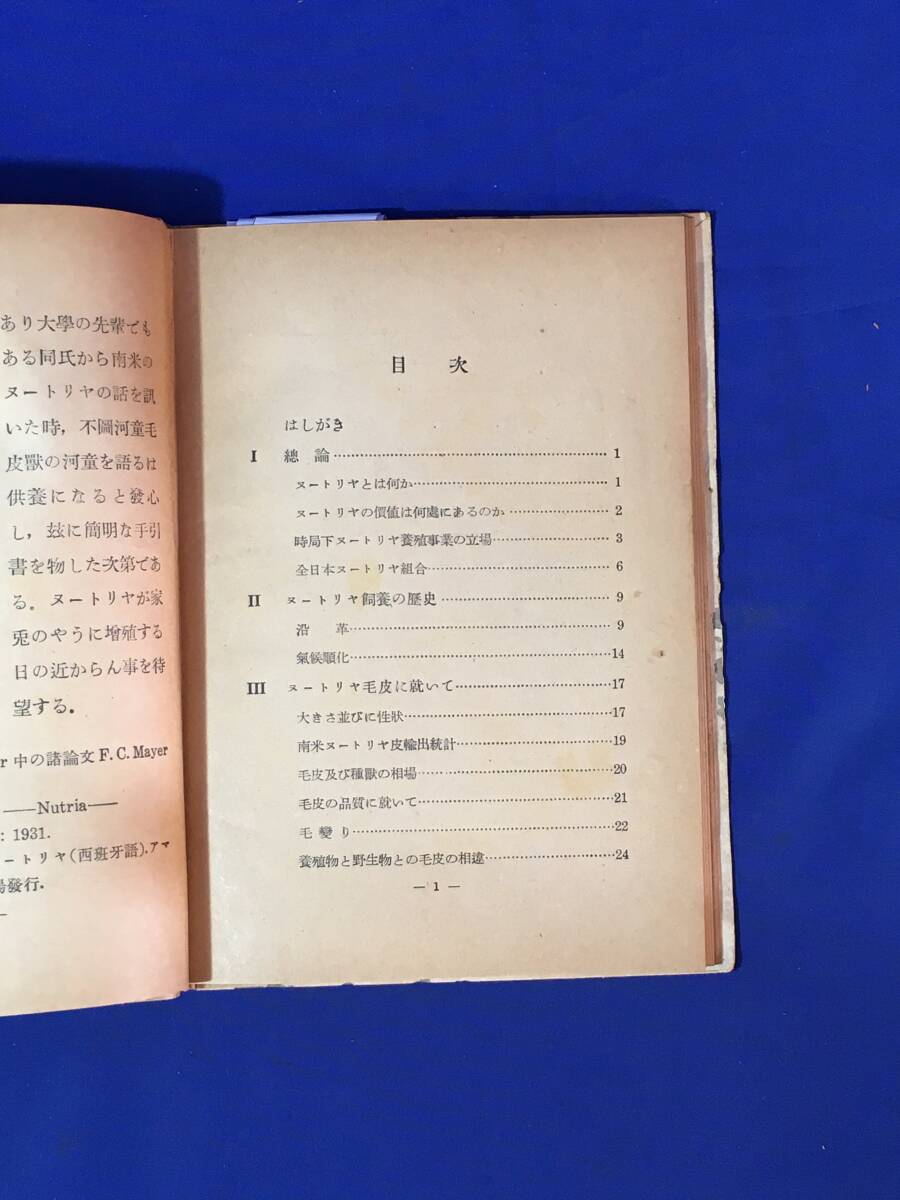 あり大學の先輩でも
ある同氏から南米の
ヌートリヤの話を訊
いた時，不圖河童毛
皮獸の河童を語るは
供養になると發心
し，玆に簡明な手引
書を物した次第であ
る。ヌートリヤが家
兎のやうに增殖する
日の近からん事を待
望する。
r 中の諸論文 F. C. Mayer
——Nutria——
: 1931.
ートリヤ(西班牙語).アマ
發行.
目次
はしがき
I 總論……1
ヌートリヤとは何か……1
ヌートリヤの價値は何處にあるのか……2
時局下ヌートリヤ養殖事業の立場……3
全日本ヌートリヤ組合……6
II ヌートリヤ飼養の歷史……9
沿革……9
氣候順化……14
III ヌートリヤ毛皮に就いて……17
大きさ並びに性狀……17
南米ヌートリヤ皮輸出統計……19
毛皮及び種獸の相場……20
毛皮の品質に就いて……21
毛變り……22
養殖物と野生物との毛皮の相違……24
— 1 —